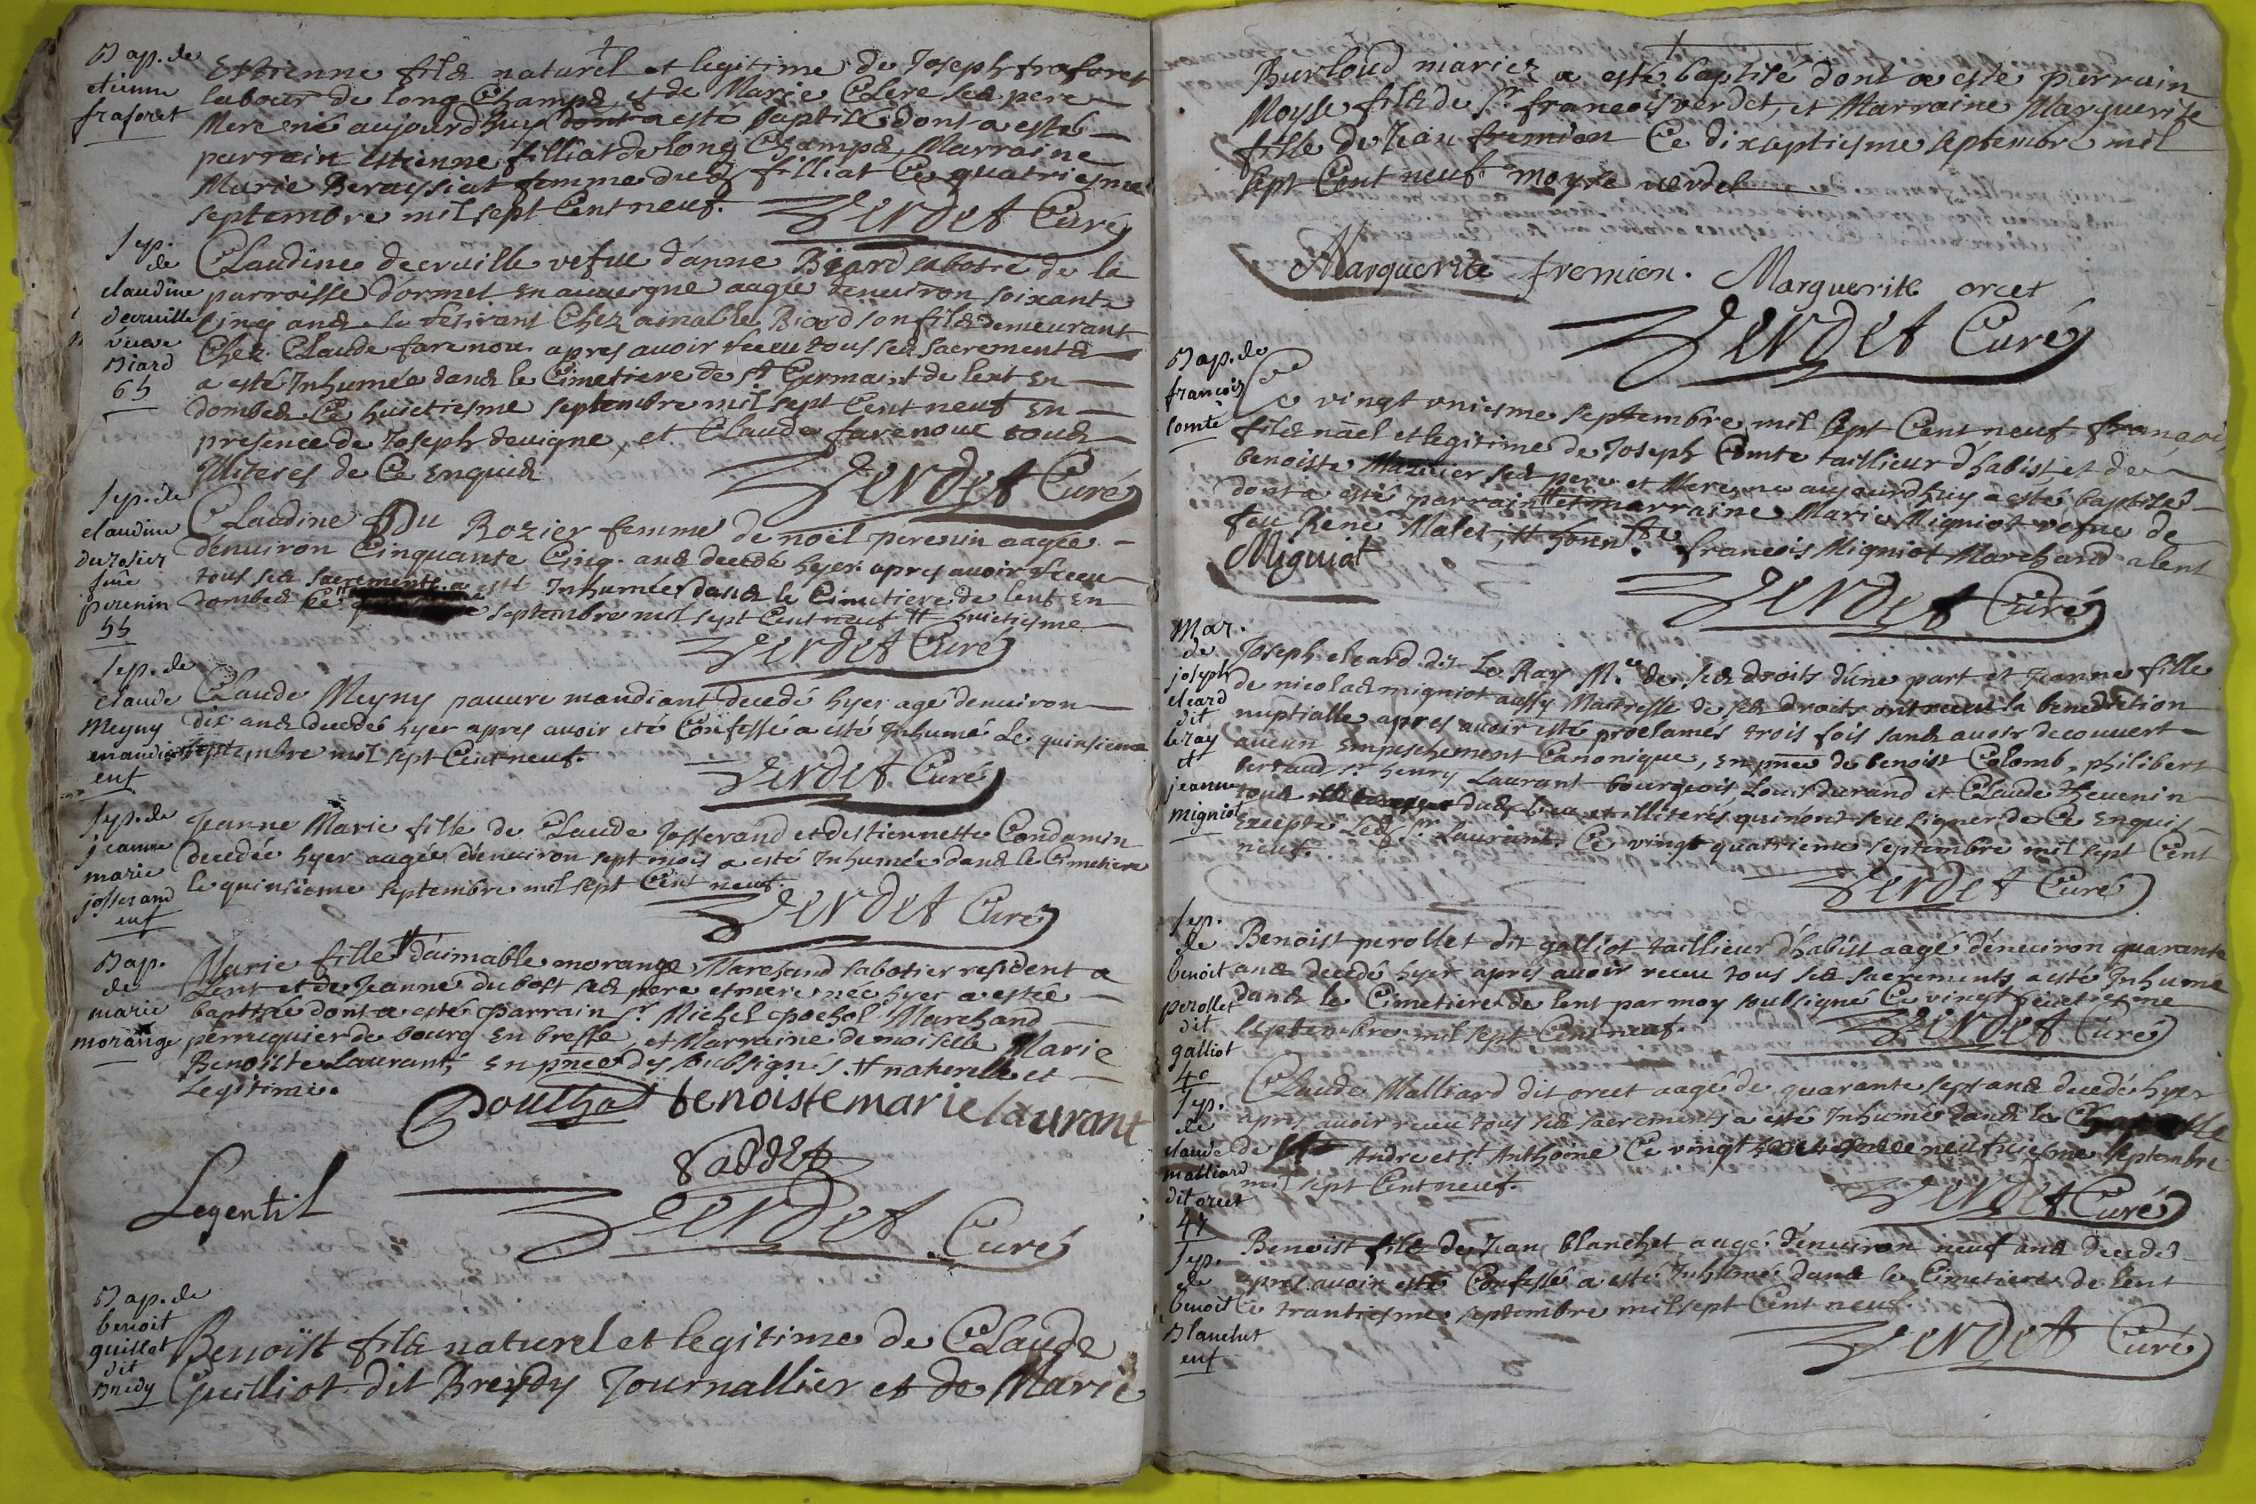 Bap. de
etienne
fraforet
Estienne fils naturel et legitime de Joseph fraforet
labour de long Champs et de Marie Clere ses pere
Mere né aujourdhuy dont a esté baptisé dont a esté
parrain estienne filliat de long Champs, Marraine
Marie femme dud filliat Ce quatriesme
septembre mil sept Cent neuf. Verdet Curé
sep.
de
claudine
decruille
veuve
Biard
65
Claudine decruille vefue d'anne Biard sabotié de la
parroisse dormet en auuergne aagée denuiron soixante
Cinq ans se retirant Chez aimable Biard son fils demeurant
Chez Claude farenoux apres auoir receu tous ses sacrements
a esté Inhumée dans le Cimetiere de st Germain de lent en
dombes Ce huictiesme septembre mil sept Cent neuf en
presence de Joseph deuigne, et Claude farenoux tous
Illiteres de Ce enquis
Verdet Curé
sep. de
claudine
durosier
feme
perenin
55
Claudine Du Rozier femme de noël perenin aagée
denuiron Cinquante Cinq ans decedé hyer apres auoir receu
tous ses sacrements a esté Inhumée dans le Cimetiere de lent en
dombes Ce septembre mil sept Cent neuf # huictiesme
Verdet Curé
sep. de
claude
Meyny
enf
Claude Meyny pauure mandiant decedé hyer agé denuiron
dix ans decedé hyer apres auoir eté Confessé a esté Inhumé Le quinsieme
septembre mil sept Cent neuf.
Verdet Curé
sep. de
jeanne
marie
josserand
enf
Jeanne Marie fille de Claude Josserand et destiennette Condamin
decedée hyer aagée denuiron sept mois a esté Inhumée dans le Cimetiere
le quinsieme septembre mil sept Cent neuf.
Verdet Curé
Bap.
de
marie
morange
Marie fille # d'aimable morange Marchand sabotier resident a
Lent et de Jeanne dubost ses pere et mere née hyer a estée
baptisée dont a esté parrain sr. Michel pochol Marchand
perruquier de bourg en bresse, et Marraine demoiselle Marie
Benoiste Laurant, en pnce des soubsignés. # naturelle et
Legitime.
benoiste marie laurant
Legentil
Verdet Curé
Bap. de
benoit
guillot
dit
Breidy
Benoist fils naturel et legitime de Claude
Guilliot dit Breydy Journallier et de Marie
Burloud mariez a esté baptisé dont a esté perrain
Moyse fils de sr. francois verdet, et Marraine Marguerite
fille de Jean fremion Ce dixseptiesme septembre mil
sept Cent neuf. moyse verdet
Marguerite fremion. Marguerite orcet
Verdet Curé
Bap. de
francois
Comte
Ce vingt vniesme septembre mil sept Cent neuf francois
fils nael et legitime de Joseph Comte taillieur d'habist, et de
benoiste Mazuier ses pere et Mere ne aujourdhuy a esté baptisé
dont a esté parrain # et marraine Marie Migniot vefue de
feu René Malet, # honn.te francois Migniot Marchand a lent
Migniot
Verdet Curé
Mar.
de
joseph
eleard
dit
le ray
et
jeanne
migniot
Joseph eleard dit Le Ray M.e de ses droits d'une part et Jeanne fille
de nicolas migniot aussy Maitresse de ses droits ont receu la benediction
nuptialle apres auoir esté proclamés trois fois sans auoir decouuert
aucun empeschement Canonique, en pnce de benoist Colomb, philibert
bertaud sr. henry Laurant bourgeois, Louis durand et Claude Theuenin
tous dud Lieu et illiterés qui n'ont sceu signer de Ce enquis
excepté Led sr. Laurant. Ce vingt quatrieme septembre mil sept Cent
neuf.
Verdet Curé
sep.
de
benoit
perollet
dit
galliot
40
Benoist perollet dit galliot taillieur d'habist aagé denuiron quarante
ans decedé hyer apres auoir receu tous ses sacrements a esté Inhumé
dans le Cimetiere de lent par moy soubsigné Ce vingt
septembre mil sept Cent neuf.
Verdet Curé
sep.
de
claude
malliard
dit orcet
47
Claude Malliard dit orcet aagé de quarante sept ans decedé hyer
apres auoir receu tous ses sacrements a esté Inhumé dans la Chapelle
de st Andre et st Anthoine Ce vingt neufuiesme septembre
mil sept Cent neuf.
Verdet Curé
sep.
de
benoit
Blanchet
enf
Benoist fils de Jean blanchet aagé denuiron neuf ans decedé
apres auoir esté Confessé a esté Inhumé dans le Cimetiere de lent
Ce trantiesme septembre mil sept Cent neuf.
Verdet Curé